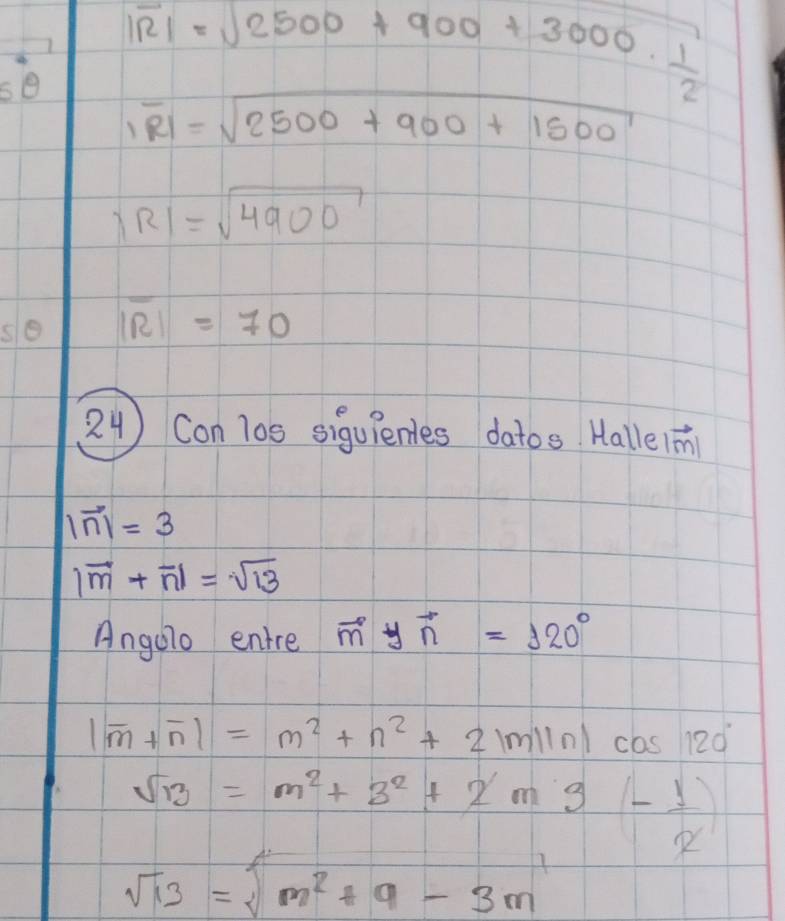 |R̅| = √2500 + 900 + 3000 . 1/2
sθ
|R̅| = √2500 + 900 + 1500
|R| = √4900
sθ
|R̅| = 70
24 Con los siguientes datos. Halle |m⃗|
|n⃗| = 3
|m⃗ + n̅| = √13
Angulo entre m⃗ y n⃗ = 120°
|m̅ + n̅| = m² + n² + 2|m||n| cos 120°
√13 = m² + 3² + 2 m 3 (-1/2)
√13 = √m² + 9 - 3m